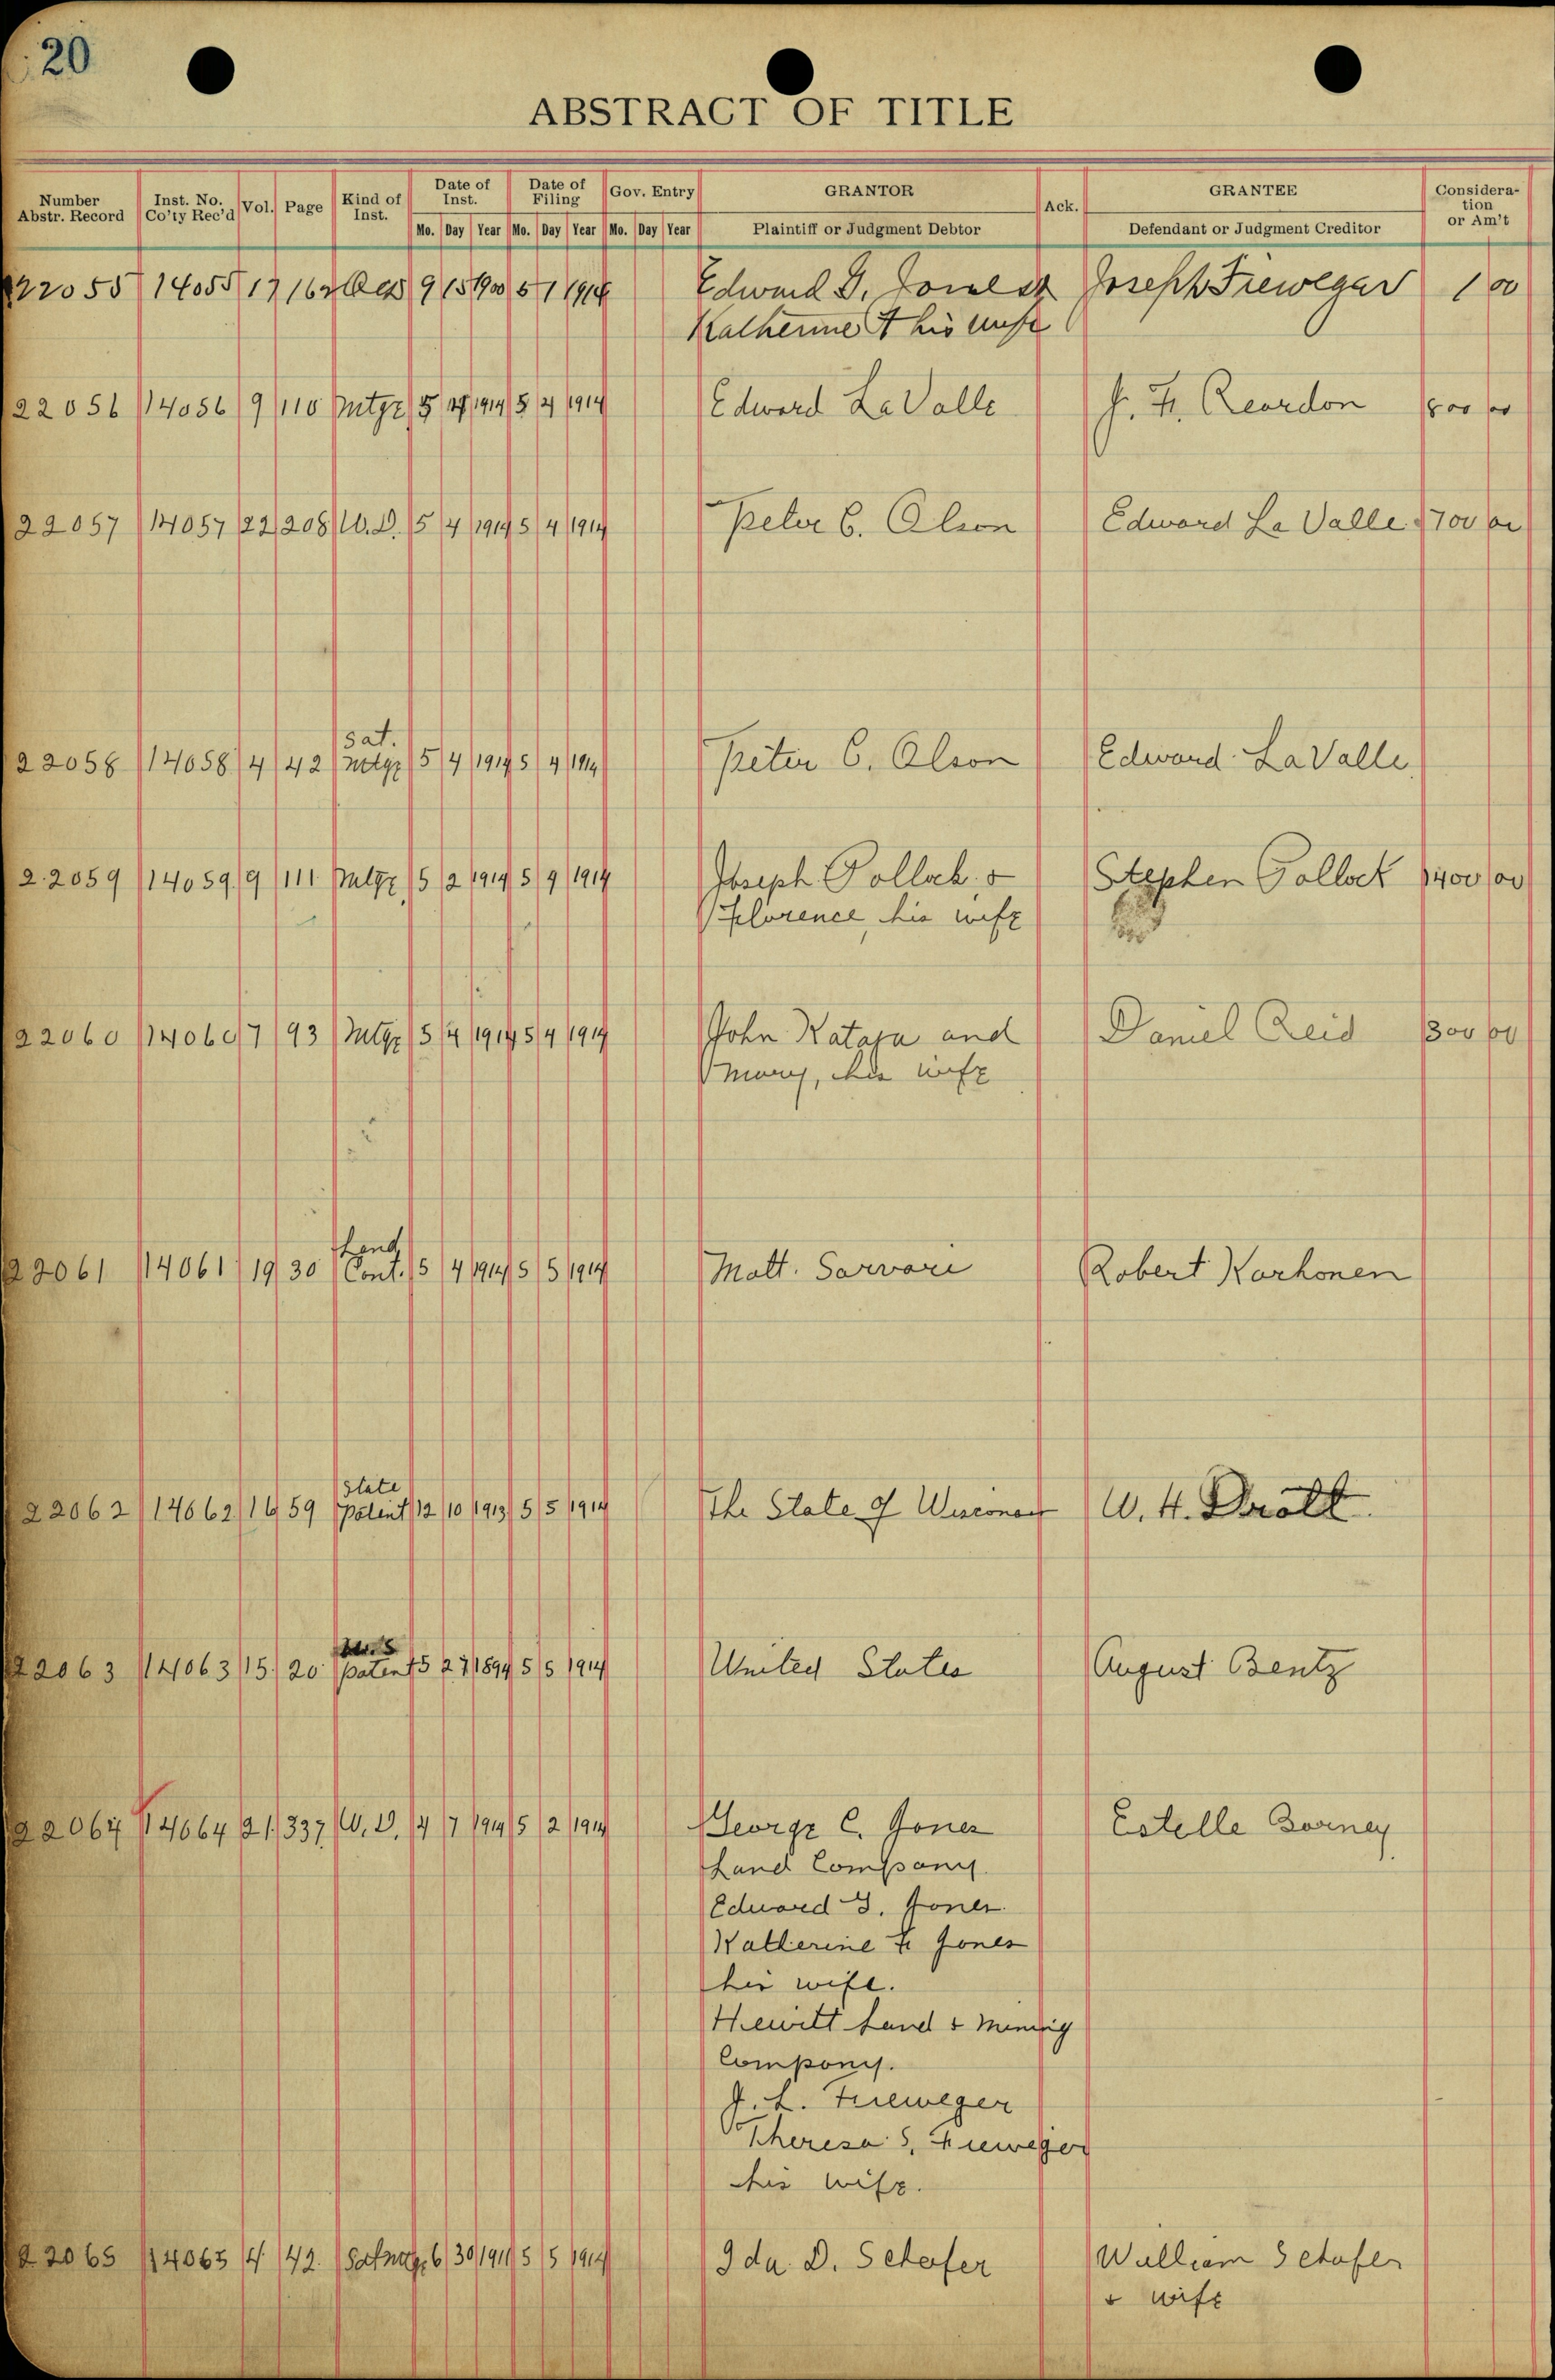 20
ABSTRACT OF TITLE
Number Abstr. Record Inst. No. Co'ty Rec'd Vol. Page Kind of Inst. Date of Inst. Date of Filing Gov. Entry GRANTOR Ack. GRANTEE Consideration or Am't
Mo. Day Year Mo. Day Year Mo. Day Year Plaintiff or Judgment Debtor Defendant or Judgment Creditor
22055 14055 17 162 9 15 1900 5 1 1914 Edward G. Jones & Joseph Fieweger 1 00
Katherine F his wife
22056 14056 9 110 Mtge 5 1914 5 4 1914 Edward LaValle J. F. Reardon 800 00
22057 14057 22 208 W.D. 5 4 1914 5 4 1914 Peter C. Olson Edward La Valle 1700 00
Sat.
22058 14058 4 42 Mtge 5 4 1914 5 4 1914 Peter C. Olson Edward LaValle
22059 14059 9 111 Mtge 5 2 1914 5 4 1914 Joseph Pollock & Stephen Pollock 1400 00
Florence, his wife
22060 14060 7 93 Mtge 5 4 1914 5 4 1914 John Kataja and Daniel Reid 300 00
Mary, his wife
Land
22061 14061 19 30 Cont. 5 4 1914 5 5 1914 Matt. Sarvari Robert Korhonen
State
22062 14062 59 Patent 12 10 1913 5 5 1914 The State of Wisconsin W. H. Drott
U.S
22063 14063 15 20 patent 5 27 1894 5 5 1914 United States August Bentz
22064 14064 21 337 W.D. 4 7 1914 5 2 1914 George C. Jones Estelle Borney
Land Company.
Edward G. Jones
Katherine F Jones
his wife.
Hewitt Land & Mining
Company.
J. L. Fieweger
Theresa S. Fieweger
his wife.
22065 14065 4 42. Sat mtge 6 30 1911 5 5 1914 Ida D. Schafer William Schafer
& wife